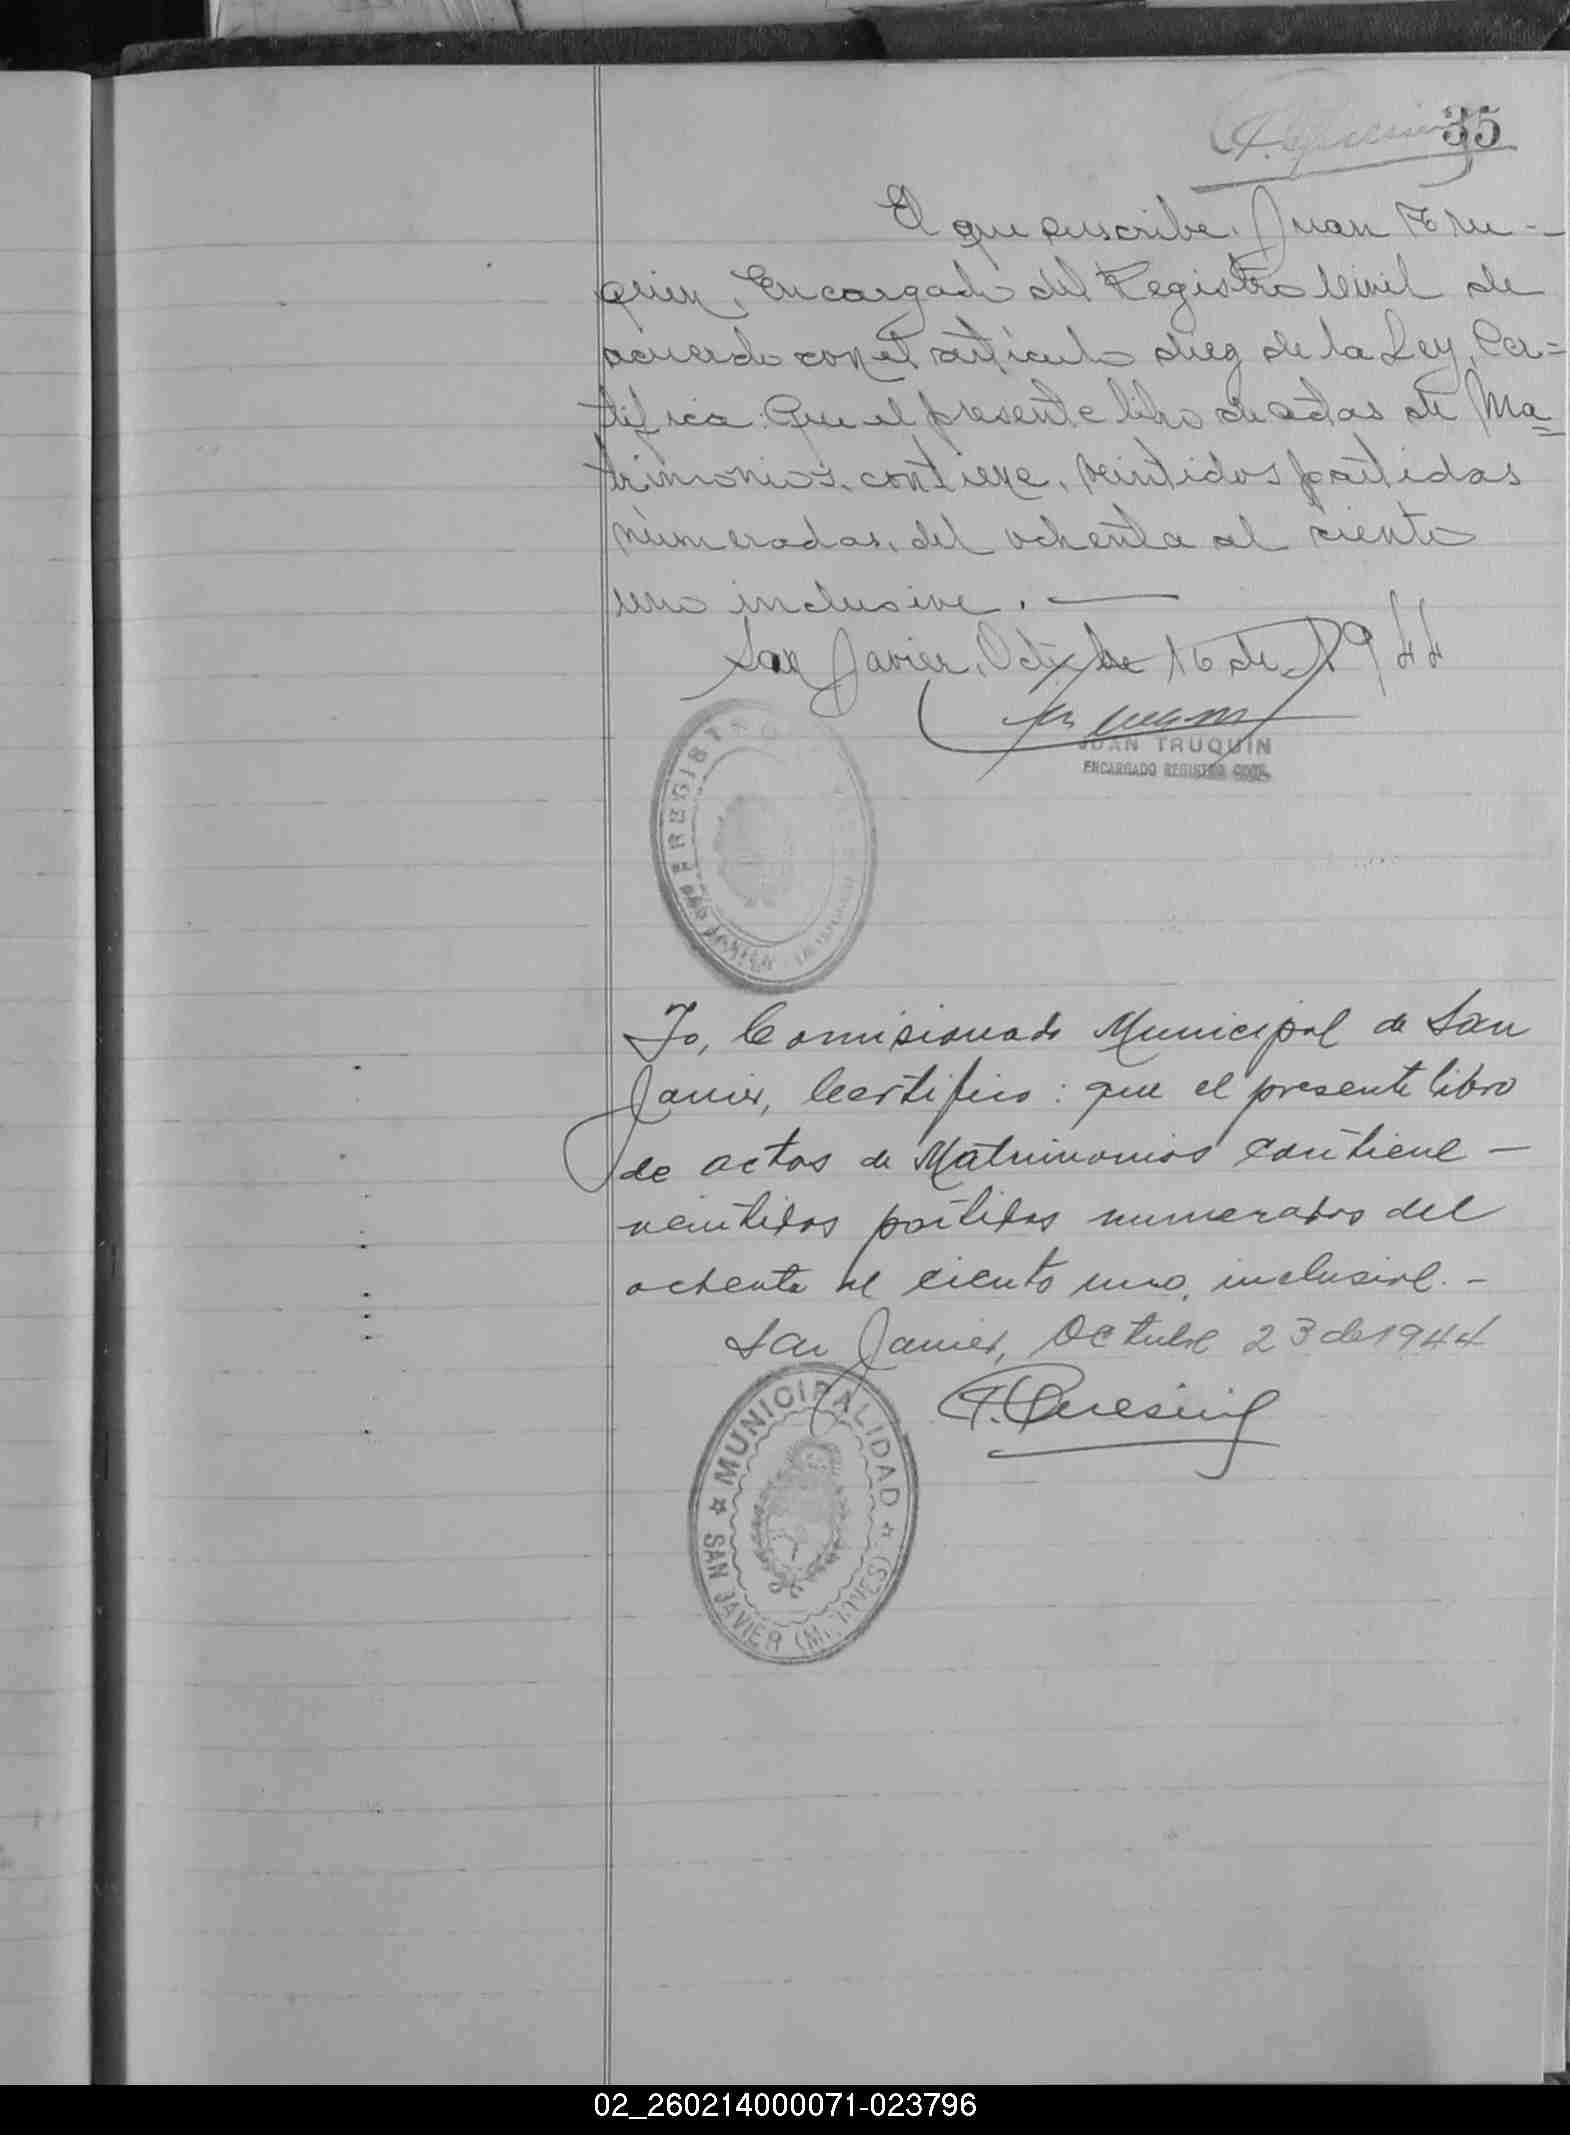 35
El que suscribe, Juan Tru--
quin, Encargado del Registro Civil de
acuerdo con el articulo diez de la Ley, Cer=
tifica: Que el presente libro de actas de Ma=
trimonios, contiene, veintidos partidas
numeradas, del ochenta al ciento
uno inclusive. —
San Javier, Octubre 16 de 1944
JUAN TRUQUIN
ENCARGADO REGISTRO CIVIL
REGISTRO
SAN JAVIER
Yo, Comisionado Municipal de San
Javier, Certifico: que el presente libro
de actas de Matrimonios contiene —
veintidos partidas numeradas del
ochenta al ciento uno, inclusive. -
San Javier, Octubre 23 de 1944
MUNICIPALIDAD
SAN JAVIER (MISIONES)
02_260214000071-023796